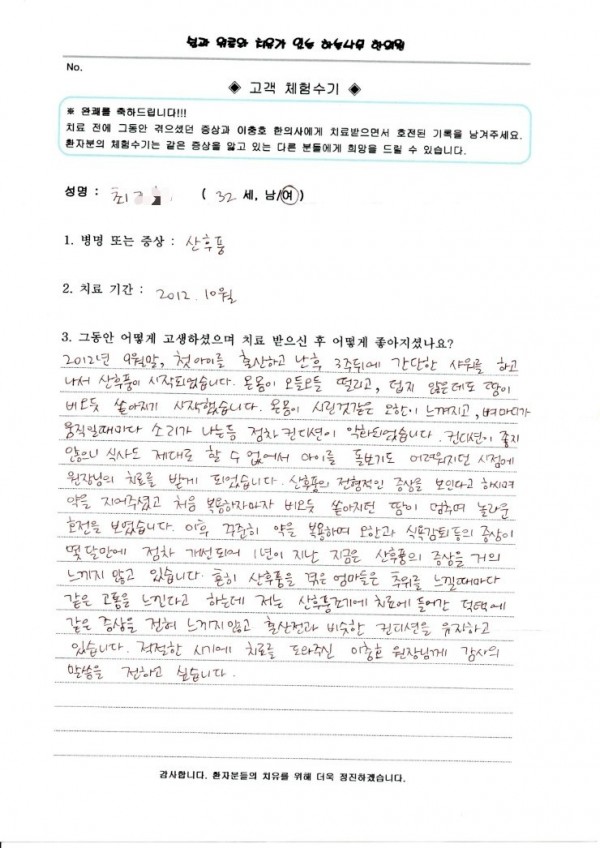 No.
◈ 고객 체험수기 ◈
※ 완쾌를 축하드립니다!!!
치료 전에 그동안 겪으셨던 증상과 이충호 한의사에게 치료받으면서 호전된 기록을 남겨주세요.
환자분의 체험수기는 같은 증상을 앓고 있는 다른 분들에게 희망을 드릴 수 있습니다.
성명 : 최 ( 32 세, 남/여 )
1. 병명 또는 증상 : 산후풍
2. 치료 기간 : 2012. 10월
3. 그동안 어떻게 고생하셨으며 치료 받으신 후 어떻게 좋아지셨나요?
2012년 9월말, 첫 아이를 출산하고 난후 3주뒤에 간단한 샤워를 하고
나서 산후풍이 시작되었습니다. 온몸이 오들오들 떨리고, 덥지 않은데도 땀이
비오듯 쏟아지기 시작했습니다. 온몸이 시린것같은 오한이 느껴지고, 뼈마디가
움직일때마다 소리가 나는등 점차 컨디션이 악화되었습니다. 컨디션이 좋지
않으니 식사도 제대로 할 수 없어서 아이를 돌보기도 어려워지던 시점에
원장님의 치료를 받게 되었습니다. 산후풍의 전형적인 증상을 보인다고 하시며
약을 지어주셨고 처음 복용하자마자 비오듯 쏟아지던 땀이 멈추며 놀라운
호전을 보였습니다. 이후 꾸준히 약을 복용하며 오한과 식욕감퇴등의 증상이
몇 달만에 점차 개선되어 1년이 지난 지금은 산후풍의 증상을 거의
느끼지 않고 있습니다. 흔히 산후풍을 겪은 엄마들은 추위를 느낄때마다
같은 고통을 느낀다고 하는데 저는 산후풍초기에 치료에 들어간 덕택에
같은 증상을 전혀 느끼지않고 출산전과 비슷한 컨디션을 유지하고
있습니다. 적절한 시기에 치료를 도와주신 이충호 원장님께 감사의
말씀을 전하고 싶습니다.
감사합니다. 환자분들의 치유를 위해 더욱 정진하겠습니다.